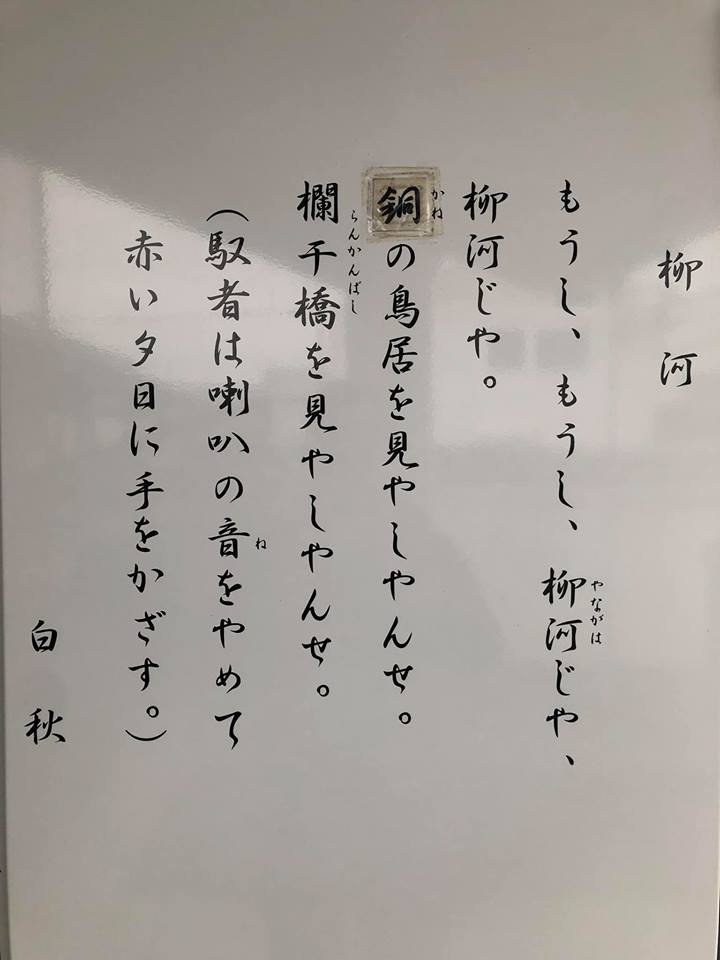 柳河
もうし、もうし、柳河じや、
やながは
柳河じや。
銅の鳥居を見やしやんせ。
かね
欄干橋を見やしやんせ。
らんかんばし
（馭者は喇叭の音をやめて
ね
赤い夕日に手をかざす。）
白秋